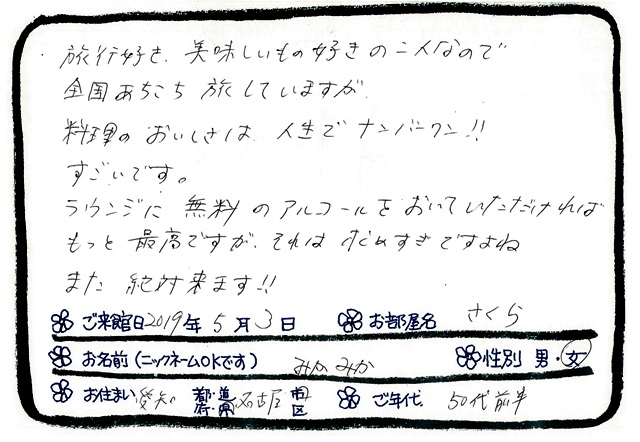 旅行好き、美味しいもの好きの二人なので
全国あちこち旅していますが
料理のおいしさは、人生でナンバーワン!!
すごいです。
ラウンジに無料のアルコールをおいていただければ
もっと最高ですが、それは求めすぎですよね
また絶対来ます!!
ご来館日 2019年 5月 3日 お部屋名 さくら
お名前(ニックネームOKです) みかみか 性別 男・女
お住まい 愛知 都・道・府・県 名古屋 市区 ご年代 50代前半